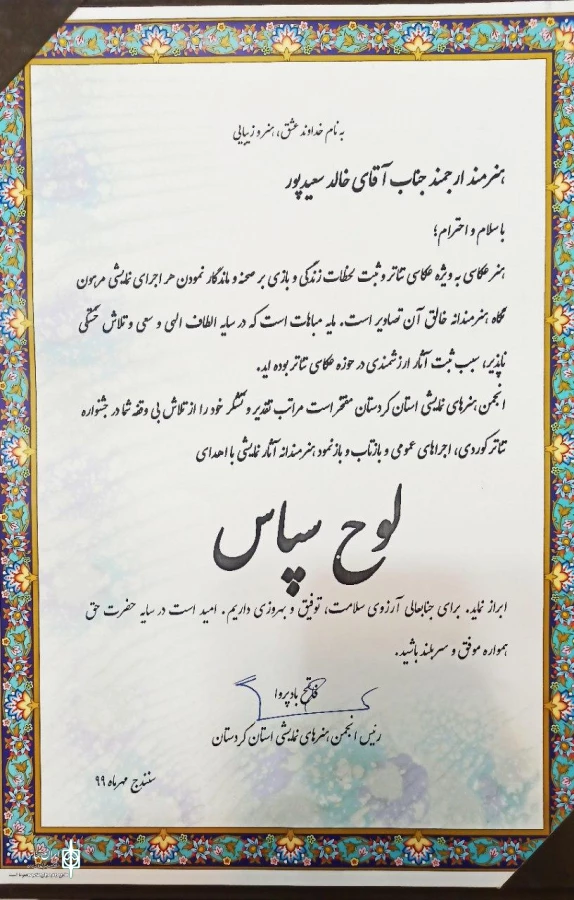 به نام خداوند عشق، هنر و زیبایی
هنرمند ارجمند جناب آقای خالد سعیدپور
با سلام و احترام؛
هنر عکاسی به ویژه عکاسی تئاتر و ثبت لحظات زندگی و بازی بر صحنه و ماندگار نمودن هر اجرای نمایشی مرهون
نگاه هنرمندانه خالق آن تصاویر است. مایه مباهات است که در سایه الطاف الهی و سعی و تلاش خستگی
ناپذیر، سبب ثبت آثار ارزشمندی در حوزه عکاسی تئاتر بوده اید.
انجمن هنرهای نمایشی استان کردستان مفتخر است مراتب تقدیر و تشکر خود را از تلاش بی وقفه شما در جشنواره
تئاتر کوردی، اجراهای عمومی و بازتاب و بازنمود هنرمندانه آثار نمایشی با اهدای
لوح سپاس
ابراز نماید. برای جنابعالی آرزوی سلامت، توفیق و بهروزی داریم. امید است در سایه حضرت حق
همواره موفق و سربلند باشید.
فاتح بادپروا
رئیس انجمن هنرهای نمایشی استان کردستان
سنندج مهرماه ۹۹